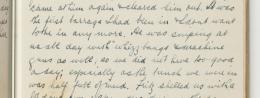 came at him again & cleared him out. It was
the first barrage I had been in & don't want
to be in any more. He was sniping at
us all day with whizz bangs & machine
guns as well, so we did not have too good
a day, especially as the trench we were in
was half full of mud. Fritz shelled us with a